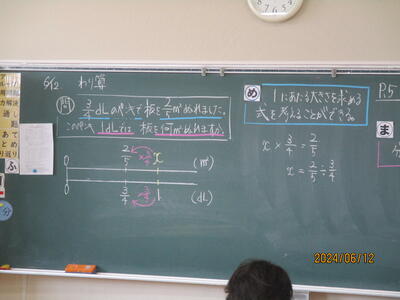 6/12 わり算
問 3/4dLのペンキで板を2/5m²ぬれました。
このペンキ1dLでは板を何m²ぬれますか。
2/5 ×3/4 x
0 (m²)
0 3/4 ×3/4 1 (dL)
め 1にあたる大きさを求める
式を考えることができる。
x × 3/4 = 2/5
x = 2/5 ÷ 3/4
P.5
ま
2024/06/12